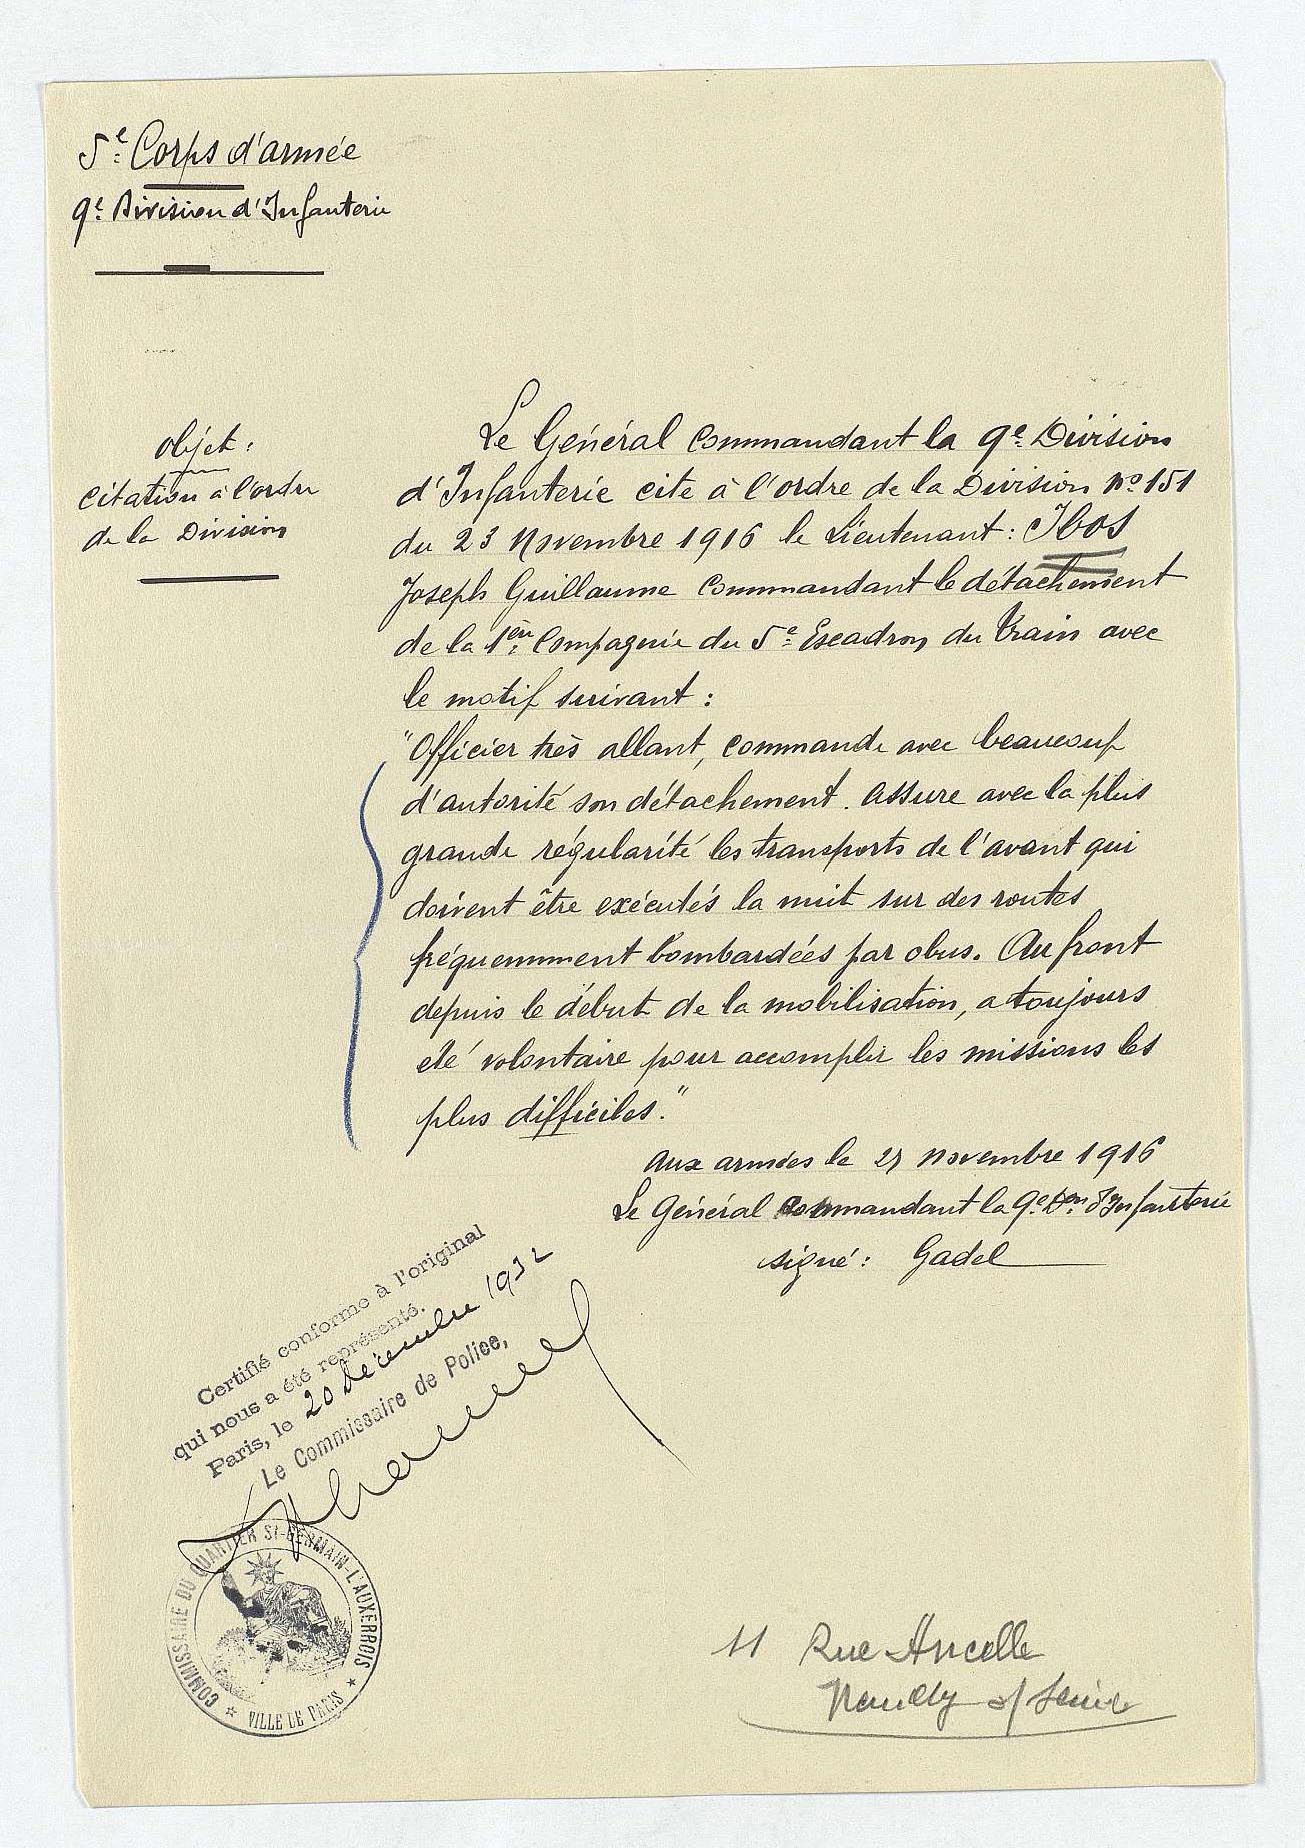 5e Corps d'armée
9e Division d'Infanterie
Objet :
Citation à l'ordre
de la Division
Le Général Commandant la 9e Division
d'Infanterie cite à l'ordre de la Division No 151
du 23 Novembre 1916 le Lieutenant : Ibos
Joseph Guillaume Commandant le détachement
de la 1ère Compagnie du 5e Escadron du Train avec
le motif suivant :
"Officier très allant, commande avec beaucoup
d'autorité son détachement. Assure avec la plus
grande régularité les transports de l'avant qui
doivent être exécutés la nuit sur des routes
fréquemment bombardées par obus. Au front
depuis le début de la mobilisation, a toujours
été volontaire pour accomplir les missions les
plus difficiles."
Aux armées le novembre 1916
Le Général Commandant la 9e Don d'Infanterie
signé : Gadel
Certifié conforme à l'original
qui nous a été représenté.
Paris, le 20 décembre 1932
Le Commissaire de Police,
COMMISSAIRE DU QUARTIER St-GERMAIN-L'AUXERROIS
★ VILLE DE PARIS ★
11 Rue Ancelle
Neuilly s/ Seine